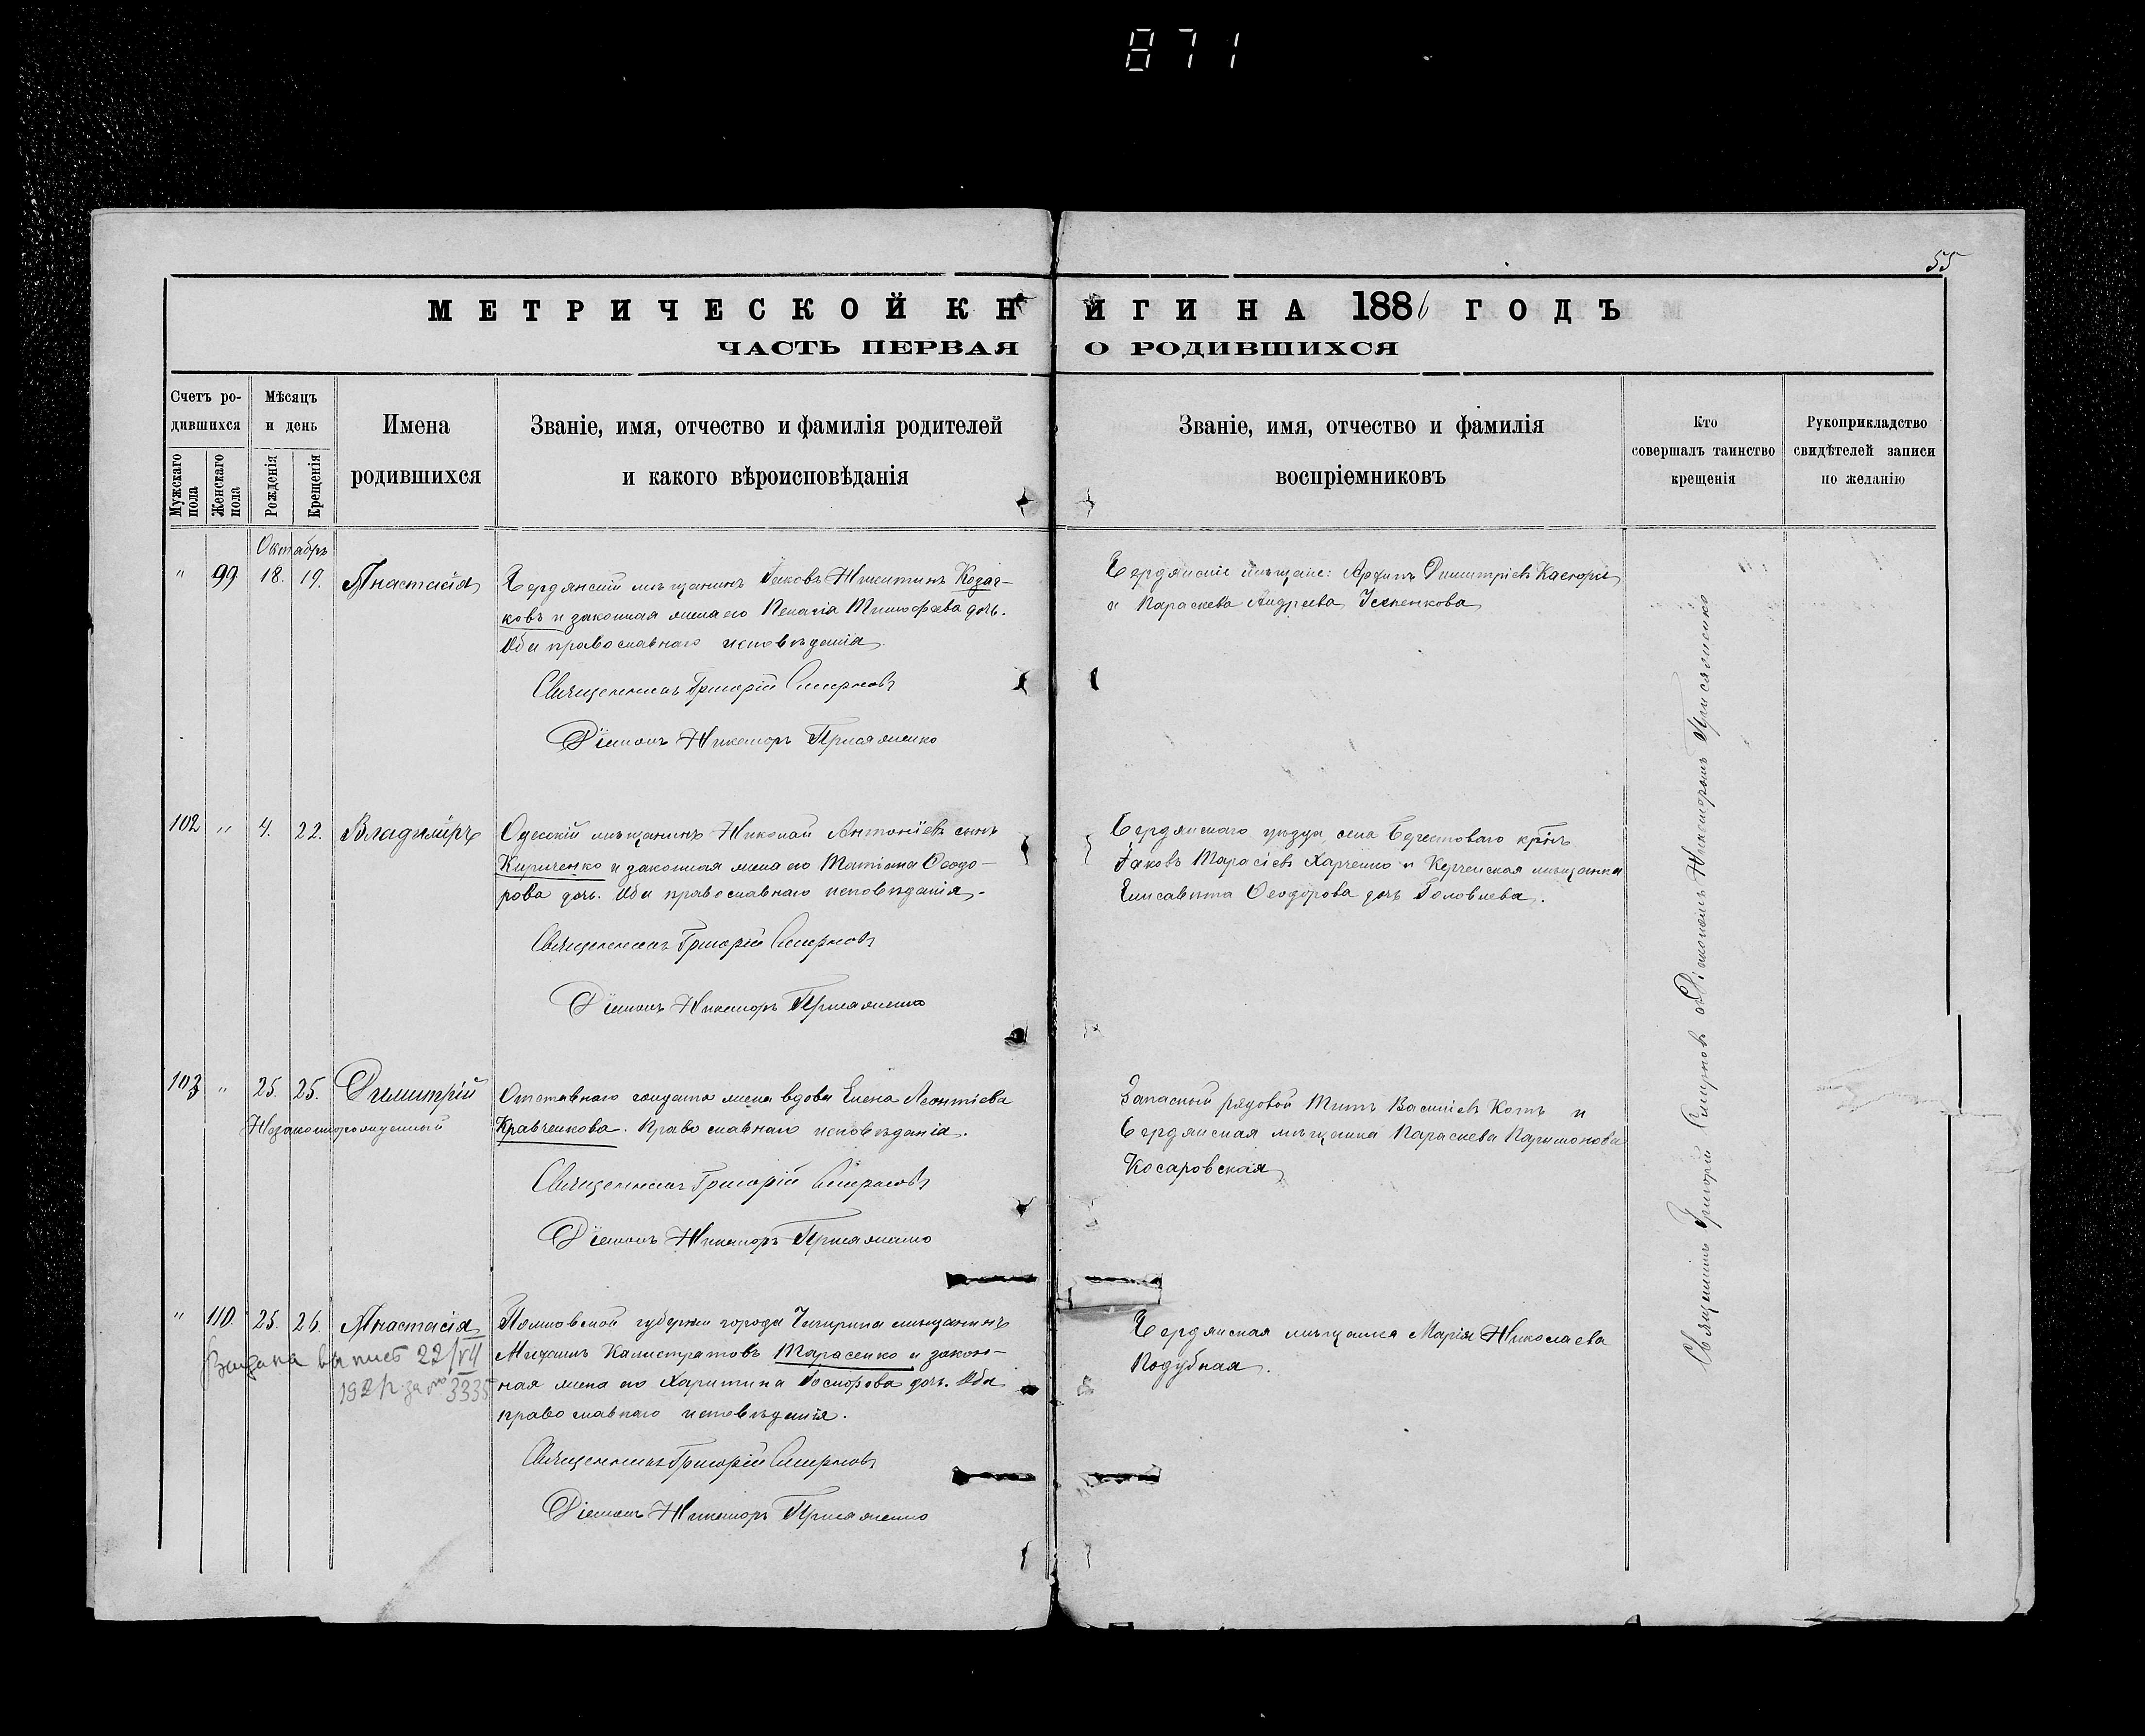 871
55
МЕТРИЧЕСКОЙ КНИГИ НА 1886 ГОДЪ
ЧАСТЬ ПЕРВАЯ О РОДИВШИХСЯ
Счетъ ро-
дившихся
Мужскаго пола
Женскаго пола
Мѣсяцъ
и день
Рожденія
Крещенія
Имена
родившихся
Званіе, имя, отчество и фамилія родителей
и какого вѣроисповѣданія
Званіе, имя, отчество и фамилія
воспріемниковъ
Кто
совершалъ таинство
крещенія
Рукоприкладство
свидѣтелей записи
по желанію
Октябрь
" 99 18. 19. Анастасія
Бердянскій мѣщанинъ Іаковъ Никитинъ Козач-
ковъ и законная жена его Пелагія Тимофѣева дочь.
Оба православнаго исповѣданія
Священникъ Григорій Смирновъ
Діаконъ Никаноръ Присяженко
Бердянскіе мѣщане: Димитріевъ
и Параскева Андреева
102 " 4. 22. Владиміръ
Одесскій мѣщанинъ Николай Антоніевъ сынъ
Кириченко и законная жена его Татіана Ѳеодо-
рова дочь. Оба православнаго исповѣданія.
Священникъ Григорій Смирновъ
Діаконъ Никаноръ Присяженко
Бердянскаго уѣзда села Берестоваго кр-нъ
Іаковъ Тарасіевъ Харченко и Керченская мѣщанка
Елисавета Ѳеодорова дочь Головлева.
103 " 25. 25. Димитрій
Незаконнорожденный
Отставнаго солдата жена вдова Елена Леонтіева
Кравченкова. Православнаго исповѣданія.
Священникъ Григорій Смирновъ
Діаконъ Никаноръ Присяженко
Запасный рядовой Титъ Василіевъ Котъ и
Бердянская мѣщанка Параскева Парѳмонова
Косаровская
" 110. 25. 26. Анастасія
Видана випис 22/VII
192 р. за № 3335
губерніи города Чигирина мѣщанинъ
Михаилъ Калистратовъ Тарасенко и закон-
ная жена его Харитина дочь. Оба
православнаго исповѣданія.
Священникъ Григорій Смирновъ
Діаконъ Никаноръ Присяженко
Бердянская мѣщанка Марія Николаева
Подубная.
Священникъ Григорій Смирновъ съ Діакономъ Никаноромъ Присяженко